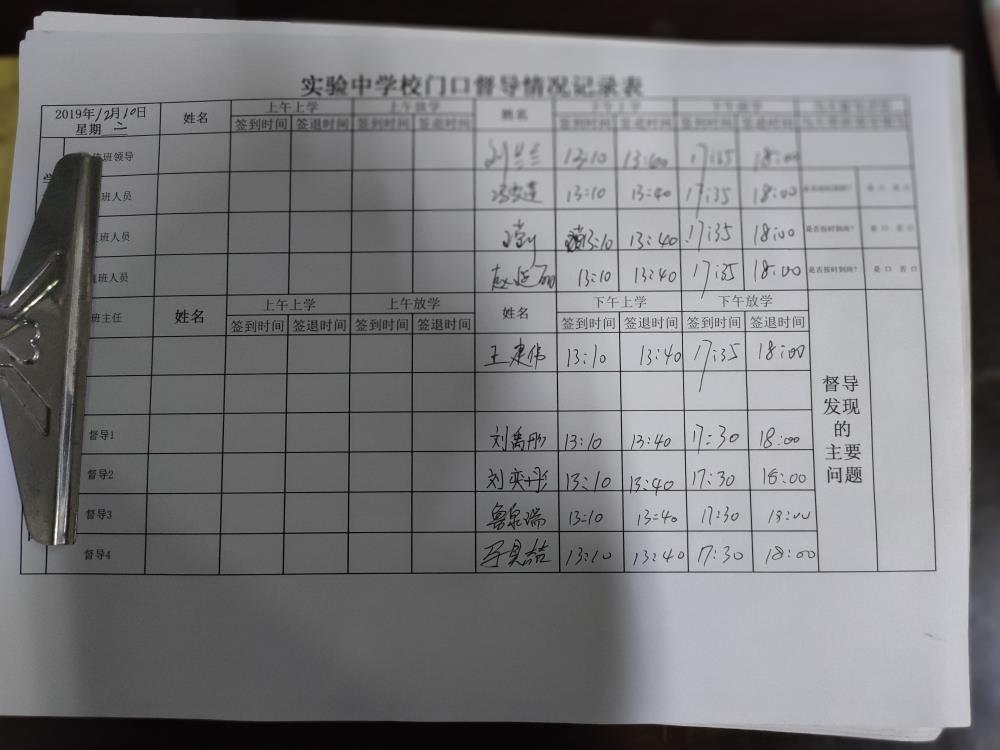 实验中学校门口督导情况记录表
2019年12月10日 姓名 上午上学 上午放学 姓名 下午上学 下午放学
星期 二 签到时间 签退时间 签到时间 签退时间 签到时间 签退时间 签到时间 签退时间
班领导 13:10 17:35 18:00
班人员 13:10 13:40 17:35 18:00
班人员 13:10 13:40 17:35 18:00 是否按时到岗? 是 口 否 口
班人员 赵延丽 13:10 13:40 17:35 18:00 是否按时到岗? 是 口 否 口
班主任 姓名 上午上学 上午放学 姓名 下午上学 下午放学
签到时间 签退时间 签到时间 签退时间 签到时间 签退时间 签到时间 签退时间
王建伟 13:10 13:40 17:35 18:00
督导
发现
的
主要
问题
督导1 刘禹彤 13:10 13:40 17:30 18:00
督导2 刘奕彤 13:10 13:40 17:30 18:00
督导3 鲁泉瑞 13:10 13:40 17:30 18:00
督导4 13:10 13:40 17:30 18:00